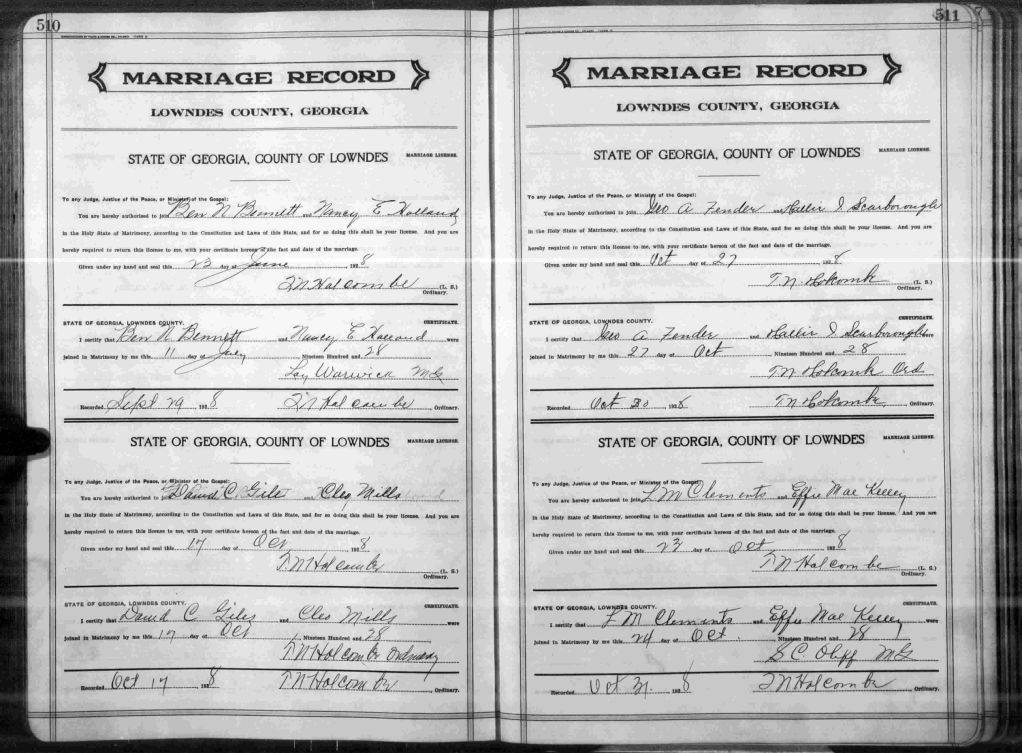 510
MARRIAGE RECORD
LOWNDES COUNTY, GEORGIA
STATE OF GEORGIA, COUNTY OF LOWNDES MARRIAGE LICENSE.
To any Judge, Justice of the Peace, or Minister of the Gospel:
You are hereby authorized to join Ben N Bennett and Nancy E Holland
in the Holy State of Matrimony, according to the Constitution and Laws of this State, and for so doing this shall be your license. And you are
hereby required to return this license to me, with your certificate hereon of the fact and date of the marriage.
Given under my hand and seal this 23 day of June 1928
T N Holcombe (L. S.)
Ordinary.
STATE OF GEORGIA, LOWNDES COUNTY. CERTIFICATE.
I certify that Ben N Bennett and Nancy E Holland were
joined in Matrimony by me this 11 day of July Nineteen Hundred and 28
Lay Warwick MG
Recorded Sept 29 1928 T N Holcombe Ordinary.
STATE OF GEORGIA, COUNTY OF LOWNDES MARRIAGE LICENSE.
To any Judge, Justice of the Peace, or Minister of the Gospel:
You are hereby authorized to join David C. Giles and Cleo Mills
in the Holy State of Matrimony, according to the Constitution and Laws of this State, and for so doing this shall be your license. And you are
hereby required to return this license to me, with your certificate hereon of the fact and date of the marriage.
Given under my hand and seal this 17 day of Oct 1928
T N Holcombe (L. S.)
Ordinary.
STATE OF GEORGIA, LOWNDES COUNTY. CERTIFICATE.
I certify that David C Giles and Cleo Mills were
joined in Matrimony by me this 17 day of Oct Nineteen Hundred and 28
T N Holcombe Ordinary
Recorded Oct 17 1928 T N Holcombe Ordinary.
511
MARRIAGE RECORD
LOWNDES COUNTY, GEORGIA
STATE OF GEORGIA, COUNTY OF LOWNDES MARRIAGE LICENSE.
To any Judge, Justice of the Peace, or Minister of the Gospel:
You are hereby authorized to join Geo A Fender and Hallie I Scarborough
in the Holy State of Matrimony, according to the Constitution and Laws of this State, and for so doing this shall be your license. And you are
hereby required to return this license to me, with your certificate hereon of the fact and date of the marriage.
Given under my hand and seal this Oct day of 27 1928
T. N. Holcomb (L. S.)
Ordinary.
STATE OF GEORGIA, LOWNDES COUNTY. CERTIFICATE.
I certify that Geo A Fender and Hallie I Scarborough were
joined in Matrimony by me this 27 day of Oct Nineteen Hundred and 28
T N Holcomb Ord
Recorded Oct 30 1928 T N Holcomb Ordinary.
STATE OF GEORGIA, COUNTY OF LOWNDES MARRIAGE LICENSE.
To any Judge, Justice of the Peace, or Minister of the Gospel:
You are hereby authorized to join L M Clements and Effie Mae Kelley
in the Holy State of Matrimony, according to the Constitution and Laws of this State, and for so doing this shall be your license. And you are
hereby required to return this license to me, with your certificate hereon of the fact and date of the marriage.
Given under my hand and seal this 23 day of Oct 1928
T N Holcombe (L. S.)
Ordinary.
STATE OF GEORGIA, LOWNDES COUNTY. CERTIFICATE.
I certify that L M Clements and Effie Mae Kelley were
joined in Matrimony by me this 24 day of Oct. Nineteen Hundred and 28
S C Oliff MG
Recorded Oct 31. 1928 T N Holcombe Ordinary.